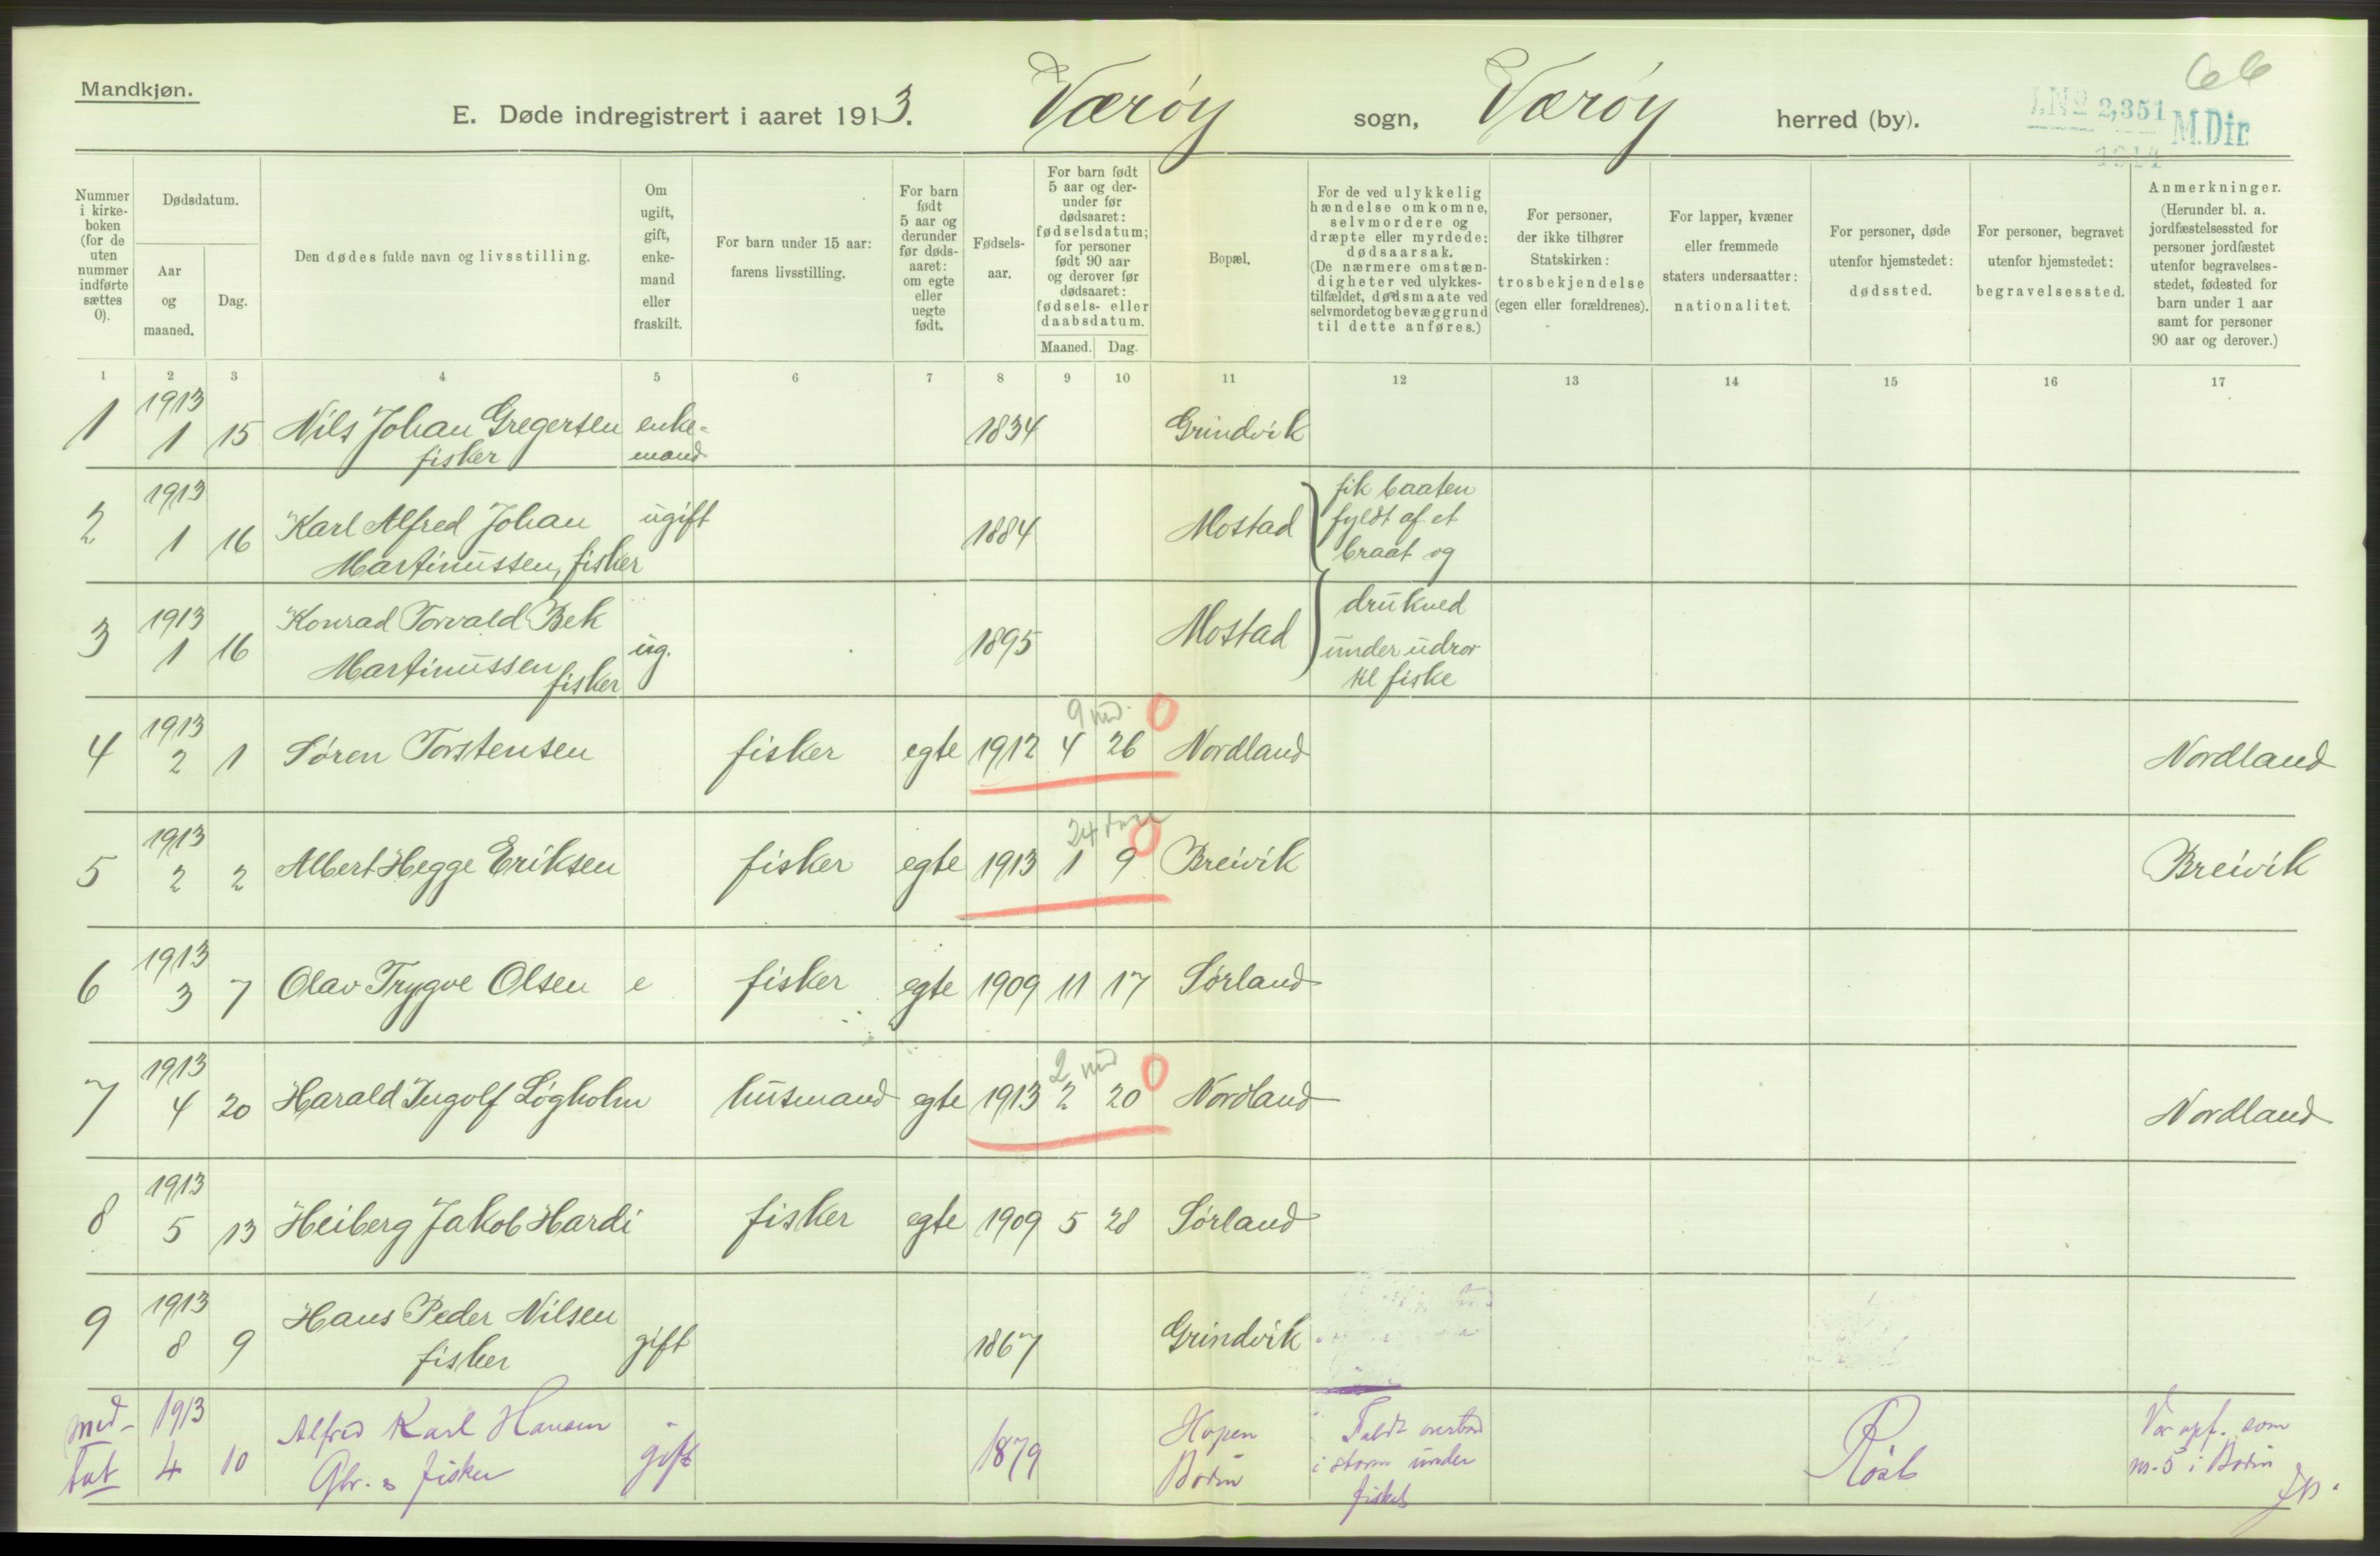 Mandkjøn.
66
E. Døde indregistrert i aaret 1913. Værøy sogn, Værøy herred (by).
J.No 2,351 M.Dir.
1914
Nummer i kirke-boken (for de uten nummer indførte sættes 0).
Dødsdatum.
Aar og maaned.
Dag.
Den dødes fulde navn og livsstilling.
Om ugift, gift, enke-mand eller fraskilt.
For barn under 15 aar: farens livsstilling.
For barn født 5 aar og derunder før døds-aaret: om egte eller uegte født.
Fødsels-aar.
For barn født 5 aar og der-under før dødsaaret: fødselsdatum; for personer født 90 aar og derover før dødsaaret: fødsels- eller daabsdatum.
Maaned. Dag.
Bopæl.
For de ved ulykkelig hændelse omkomne, selvmordere og dræpte eller myrdede: dødsaarsak. (De nærmere omstæn-digheter ved ulykkes-tilfældet, dødsmaate ved selvmordet og bevæggrund til dette anføres.)
For personer, der ikke tilhører Statskirken: trosbekjendelse (egen eller forældrenes).
For lapper, kvæner eller fremmede staters undersaatter: nationalitet.
For personer, døde utenfor hjemstedet: dødssted.
For personer, begravet utenfor hjemstedet: begravelsessted.
Anmerkninger. (Herunder bl. a. jordfæstelsessted for personer jordfæstet utenfor begravelses-stedet, fødested for barn under 1 aar samt for personer 90 aar og derover.)
1 2 3 4 5 6 7 8 9 10 11 12 13 14 15 16 17
1 1913 1 15 Nils Johan Gregersen fisker enke-mand 1834 Grindvik
2 1913 1 16 Karl Alfred Johan Martinussen, fisker ugift 1884 Mostad fik baaten fyldt af et braat og
3 1913 1 16 Konrad Torvald Bek Martinussen fisker ug. 1895 Mostad drukned under udror til fiske
9 md. 0
4 1913 2 1 Søren Torstensen fisker egte 1912 4 26 Nordland Nordland
24 0
5 1913 2 2 Albert Hegge Eriksen fisker egte 1913 1 9 Breivik Breivik
6 1913 3 7 Olav Trygve Olsen e fisker egte 1909 11 17 Sørland
2 md 0
7 1913 4 20 Harald Ingolf Løgholm husmand egte 1913 2 20 Nordland Nordland
8 1913 5 13 Heiberg Jakob Hardi fisker egte 1909 5 28 Sørland
9 1913 8 9 Hans Peder Nilsen fisker gift 1867 Grindvik
med-tat 1913 4 10 Alfred Karl Hansen Gbr. & fisker gift 1879 Hopen Bodin Faldt overbord i storm under fiskeri Røst Var opf. som nr. 5 i Bodin